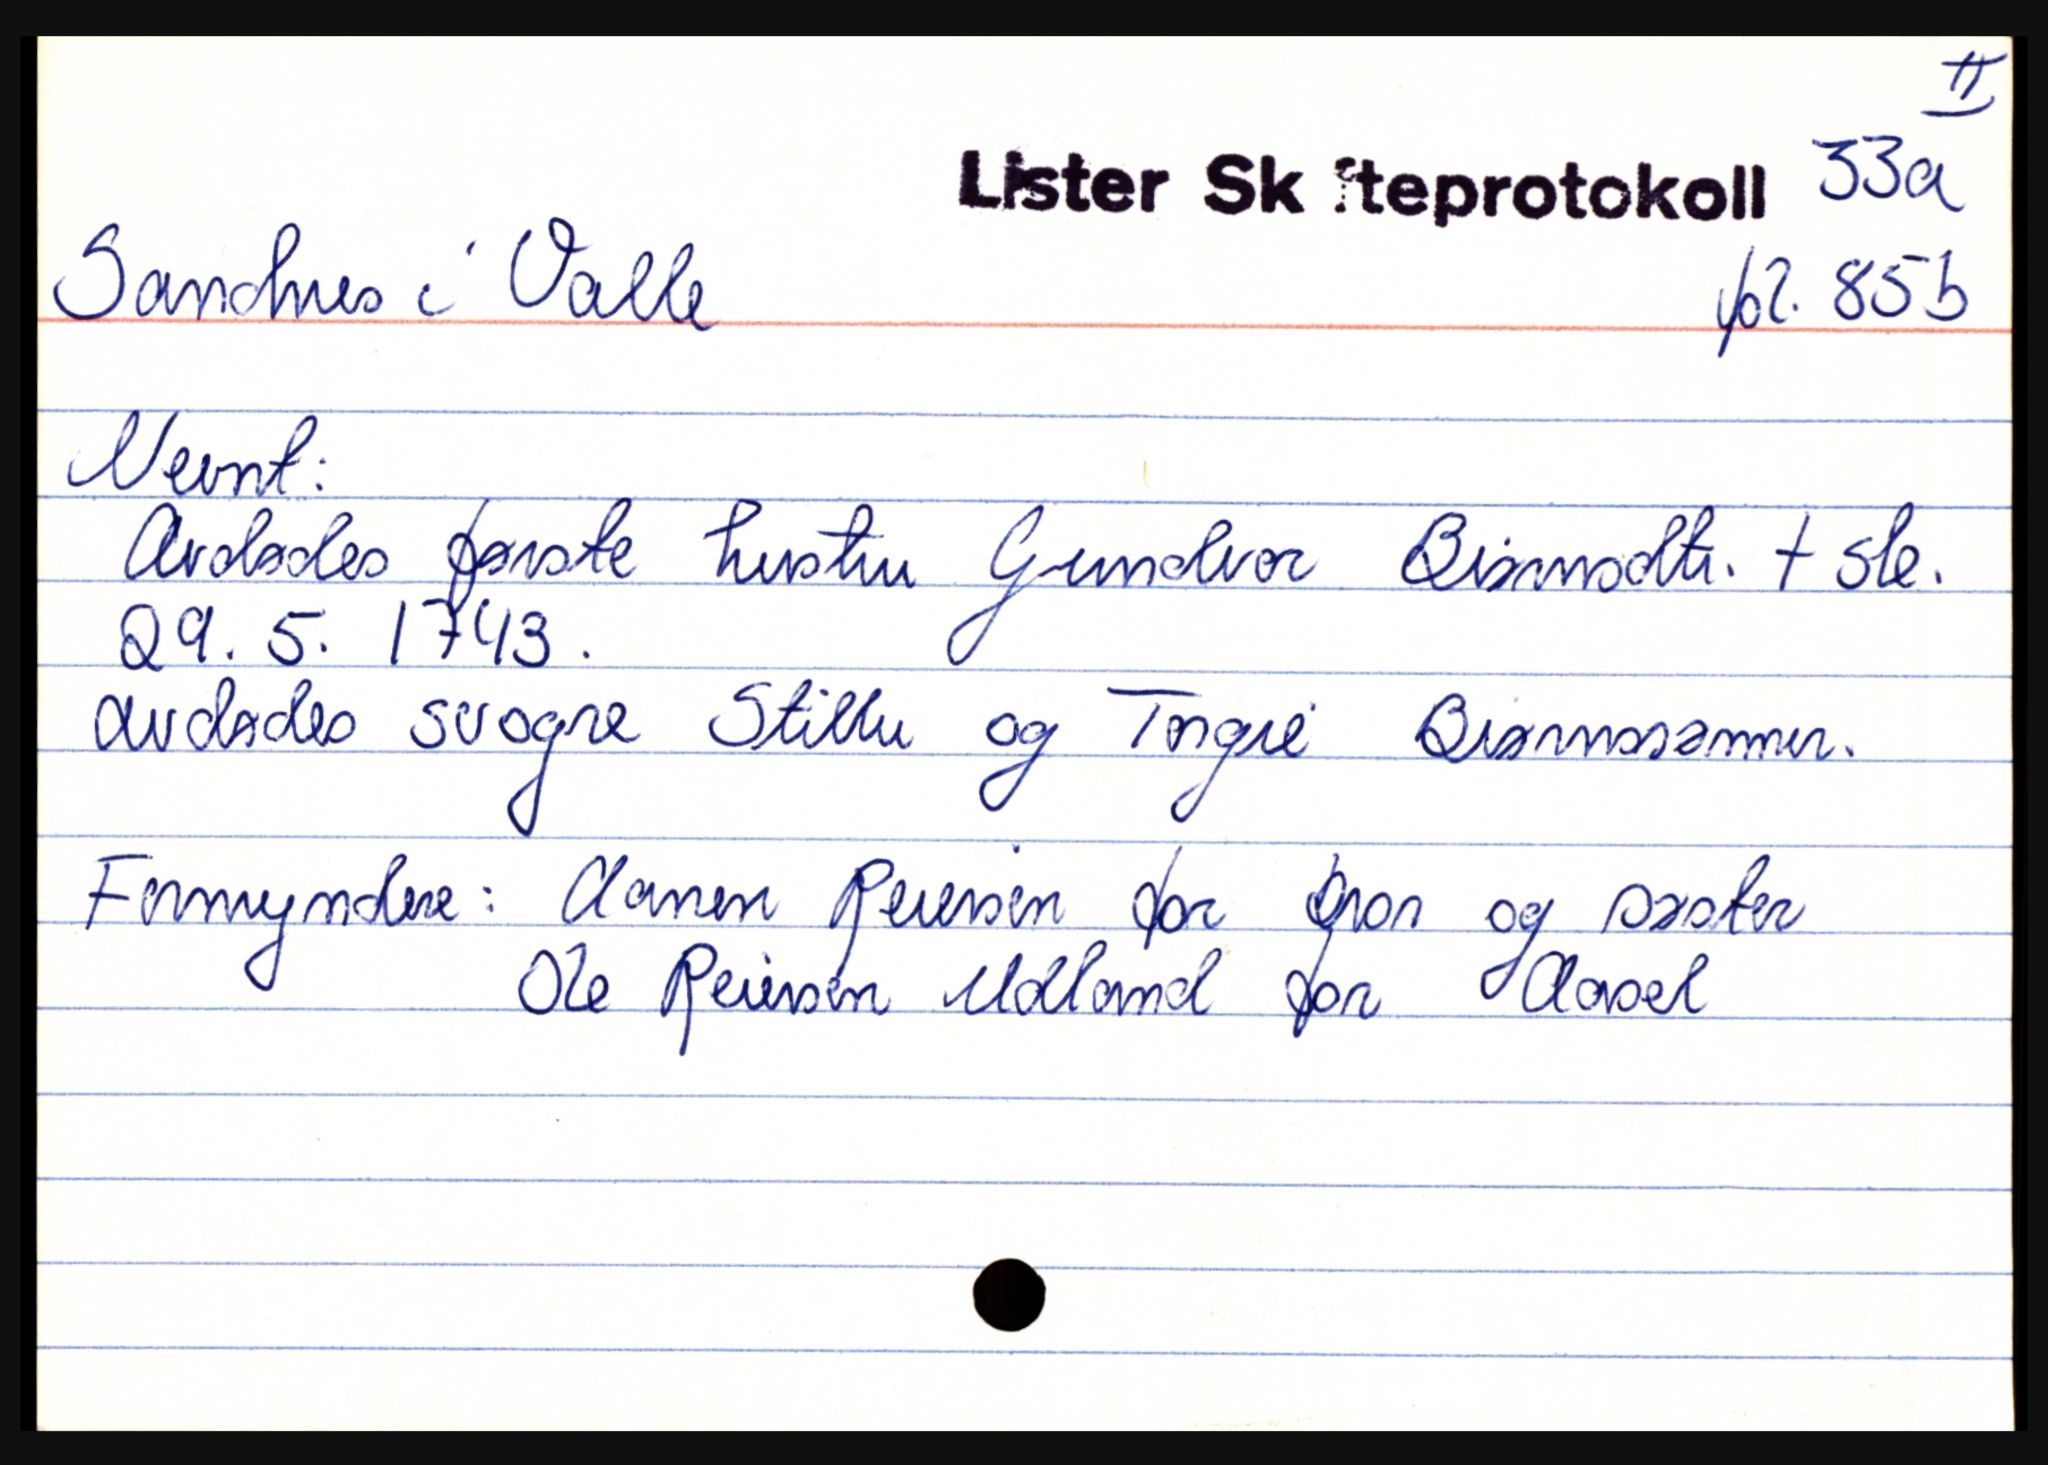 II
Lister Skifteprotokoll 33a
Sandnes i Valle fol. 85b
Nevnt:
Avdødes første hustru Gundvor Biørnsdtr. † ske.
29. 5. 1743.
avdødes svogre Stillu og Torgie Biørnssønner.
Formyndere: Aanen Reiersen for bror og søster
Ole Reiersen Udland for Aasel